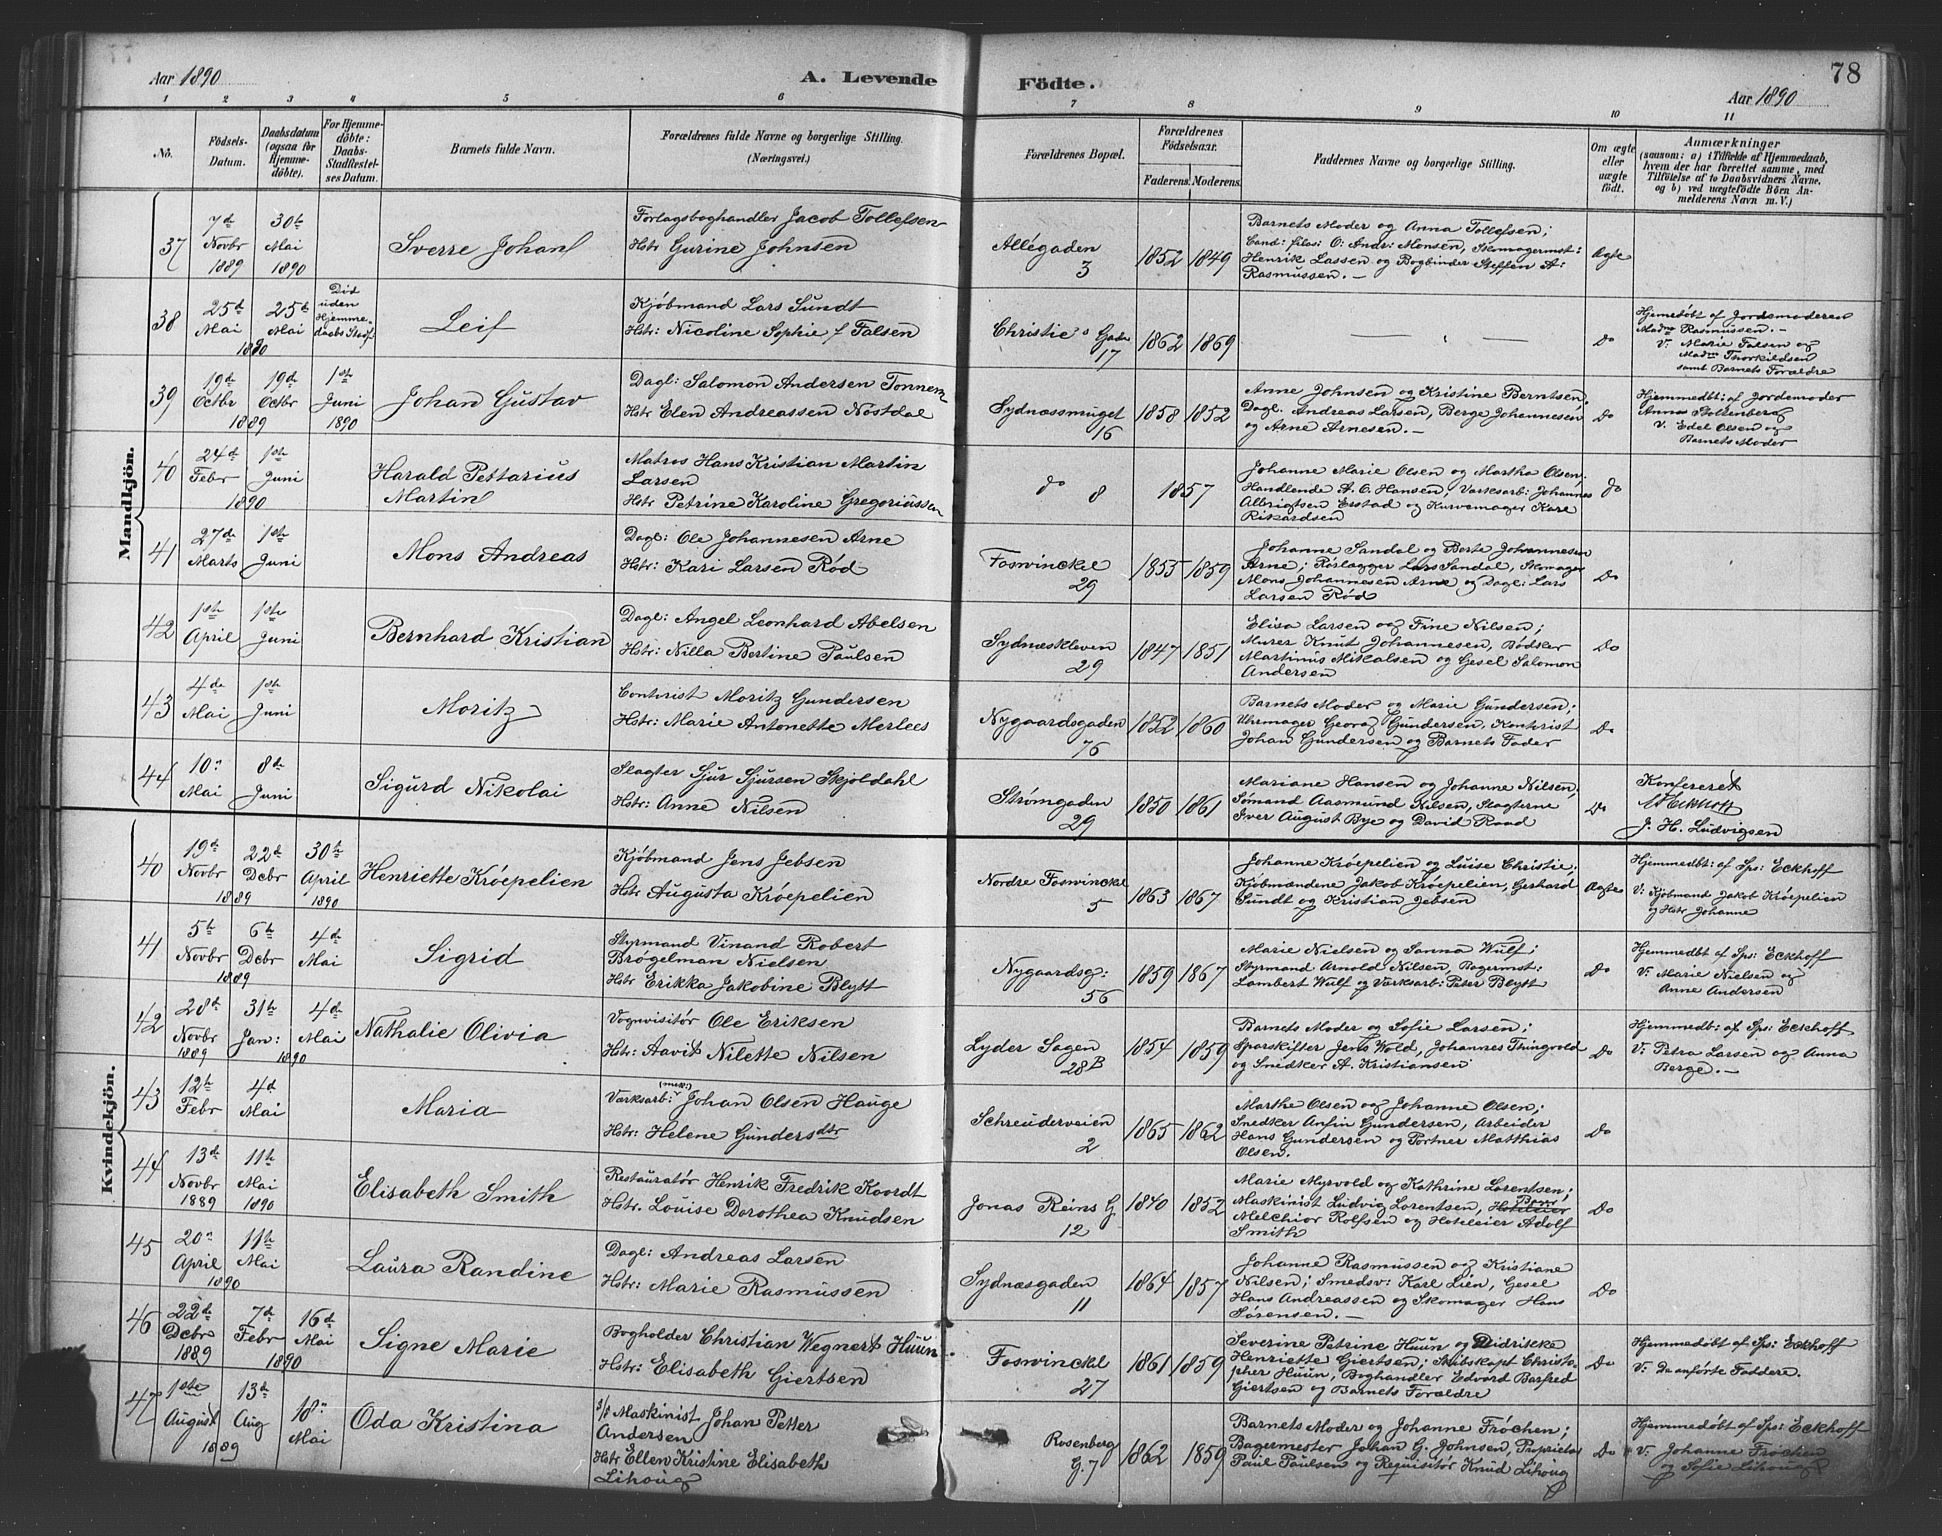 Aar 1890
A. Levende
Födte.
78
Aar 1890
1 2 3 4 5 6 7 8 9 10 11
No.
Födsels-
Datum.
Daabsdatum
(ogsaa for
Hjemme-
döbte).
For Hjemme-
döbte:
Daabs-
Stadfæstel-
ses Datum.
Barnets fulde Navn.
Forældrenes fulde Navne og borgerlige Stilling.
(Næringsvei.)
Forældrenes Bopæl.
Forældrenes
Födselsaar.
Faderens. Moderens.
Faddernes Navne og borgerlige Stilling.
Om ægte
eller
uægte
födt.
Anmærkninger
(saasom: a) i Tilfælde af Hjemmedaab,
hvem der har forrettet samme, med
Tilföielse af to Daabsvidners Navne,
og b) ved uægtefödte Börn An-
melderens Navn m. V.)
Mandkjön.
37
7de
Novbr
1889
30te
Mai
1890
Sverre Johan
Forlagsboghandler Jacob Tollefsen
Hstr Gurine Johnsen
Allégaden
3
1852 1849
Barnets Moder og Anna Tollefsen;
Cand: filos: O. Andr: Monsen, Skomagermst:
Henrik Lassen og Bogbinder Steffen A.
Rasmussen. —
Ægte
38
25de
Mai
25de
Mai
1890
Död
uden
Hjemme-
daabs Stadf.
Leif
Kjöbmand Lars Sundt
Hstr: Nicoline Sophie f Falsen
Christie's Gade
17
1862 1869
Do
Hjemedöbt af Jordemoderen
Madme Rasmussen. —
V: Marie Falsen og
Madme Thorkildsen
samt Barnets Forældre
39
19de
Octbr
19de
Octbr
1889
1ste
Juni
1890
Johan Gustav
Dagl: Salomon Andersen Tonnem
Hstr Elen Andreassen Nöstdal
Sydnæssmuget
16
1858 1852
Anne Johnsen og Kristine Berntsen,
Dagl. Andreas Larsen, Berge Johannesen
og Arne Arnesen. —
Do
Hjemmedbt: af Jordemoder
Anna Stoltenberg
V. Edel Olsen og
Barnets Moder
40
24de
Febr
1ste
Juni
1890
Harald Pettarius
Martin
Matros Hans Kristian Martin
Larsen
Hstr Petrine Karoline Gregoriussen
do 8
1857
Johanne Marie Olsen og Martha Olsen,
Handlende A. O. Hansen, Værksarb: Johannes
Albrigtsen Erstad og Kurvemager Kare
Rikardsen
do
41
27de
Marts
1ste
Juni
Mons Andreas
Dagl: Ole Johannesen Arne
Hstr: Kari Larsen Röd
Fosvinckel
29
1855 1859
Johanne Sandal og Berte Johannesen
Arne; Rörlægger Lars Sandal, Skomager
Mons Johannesen Arne og Dagl: Lars
Larsen Röd
Do
42
1ste
April
1ste
Juni
Bernhard Kristian
Dagl: Angel Leonhard Abelsen
Hstr: Nilla Bertine Paulsen
Sydnæskleven
29
1847 1851
Elisa Larsen og Fine Nilsen;
Murer Knut Johannesen, Bödker
Martinus Mikalsen og Gesel Salomon
Andersen
Do
43
4de
Mai
1ste
Juni
Moritz
Contorist Moritz Gundersen
Hstr: Marie Antonette Merlees
Nygaardsgaden
76
1852 1860
Barnets Moder og Marie Gundersen;
Uhrmager Georg Gundersen, Kontorist
Johan Gundersen og Barnets Fader
Do
44
10n
Mai
8de
Juni
Sigurd Nikolai
Slagter Sjur Sjursen Skjoldahl
Hstr: Anne Nilsen
Strömgaden
29
1850 1861
Mariane Hansen og Johanne Nilsen,
Sömand Aasmund Nilsen, Slagterne
Iver August Bye og David Raad
Do
Konfereret
Eckhoff
J. H. Ludvigsen
Kvindekjön.
40
19de
Novbr
22de
Dcbr
1889
30te
April
1890
Henriette Kröepelien
Kjöbmand Jens Jebsen
Hstr: Augusta Kröepelien
Nordre Fosvinckel
5
1863 1867
Johanne Kröepelien og Luise Christie;
Kjöbmændene Jakob Kröepelien, Gerhard
Sundt og Kristian Jebsen
Ægte
Hjemmedbt: af Sps: Eckhoff
V: Kjöbmand Jakob Kröepelien
og Hstr Johanne
41
5te
Novbr
6te
Dcbr
1889
4de
Mai
Sigrid
Styrmand Vinand Robert
Brögelman Nielsen
Hstr Erikka Jakobine Blytt
Nygaardsg:
56
1859 1867
Marie Nielsen og Sanna Wulf;
Styrmand Arnold Nilsen, Bagermst:
Lambert Wulf og Værksarb: Peter Blytt
Do
Hjemmedbt af Sps: Eckhoff
V: Marie Nielsen og
Anne Andersen
42
28de
Novbr
1889
31te
Jan:
1890
4de
Mai
Nathalie Olivia
Vognvisitör Ole Eriksen
Hstr: Aavit Nilette Nilsen
Lyder Sagen
28B
1854 1859
Barnets Moder og Sofie Larsen;
Sporskifter Jens Wold, Johannes Thingvold
og Snedker A. Kristiansen
Do
Hjemmedb: af Sps: Eckhoff
V: Petra Larsen og Anna
Berge. —
43
12te
Febr
4de
Mai
Maria
Værksarb: Johan Olsen Hauge
Hstr: Helene Gundersdtr
Schreuderveien
2
1865 1862
Marthe Olsen og Johanne Olsen;
Snedker Anfin Gundersen, Arbeider
Hans Gundersen og Portner Matthias
Olsen.
Do
44
13de
Novbr
1889
11te
Mai
1890
Elisabeth Smith
Restauratör Henrik Fredrik Koordt
Hstr. Louise Dorothea Knudsen
Jonas Reins G
12
1840 1852
Marie Myrvold og Kathrine Lorentsen;
Maskinist Ludvig Lorentsen, Hoteleier
Melchior Rolfsen og Hoteleier Adolf
Smith
Do
45
20n
April
1890
11te
Mai
Laura Randine
Dagl: Andreas Larsen
Hstr: Marie Rasmussen
Sydnæsgaden
11
1864 1857
Johanne Rasmussen og Kristiane
Nilsen; Smedsv: Karl Lien, Gesel
Hans Andreassen og Skomager Hans
Sörensen. —
Do
46
22de
Dcbr
1889
7de
Febr
1890
16de
Mai
Signe Marie
Bogholder Christian Wegnert Huun
Hstr: Elisabeth Giertsen
Fosvinckel
27
1861 1859
Severine Petrine Huun og Didrikke
Henriette Giertsen; Skibskapt Christo-
pher Huun, Boghandler Edvard Barfred
Giertsen og Barnets Forældre
Do
Hjemmedöbt af Sps: Eckhoff
V: De anförte Faddere.
47
1ste
August
13de
Aug
1889
18n
Mai
Oda Kristina
Maskinist Johan Petter
Andersen
Hstr Ellen Kristine Elisabeth
Lihoug
Rosenberg
G. 7
1862 1859
Barnets Moder og Johanne Fröchen;
Bagermester Johan G. Johnsen, Proprietær
Paul Paulsen og Requisitör Knud Lihoug
Do
Hjemmedöbt af Sps: Eckhoff
V: Johanne Fröchen
og Sofie Lihoug